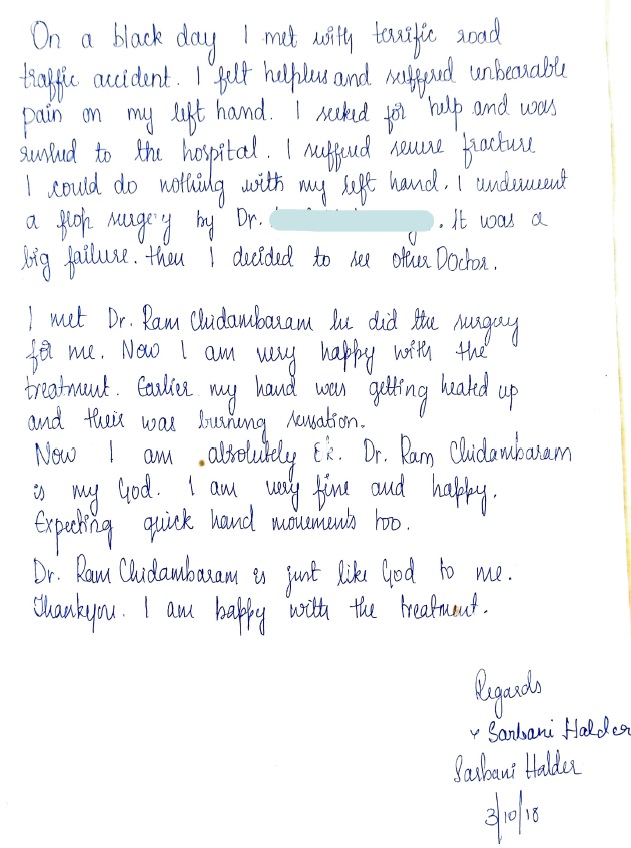 On a black day I met with terrific road
traffic accident. I felt helpless and suffered unbearable
pain on my left hand. I seeked for help and was
rushed to the hospital. I suffered severe fracture
I could do nothing with my left hand. I underwent
a flop surgery by Dr. . It was a
big failure. then I decided to see other Doctor.
I met Dr. Ram Chidambaram he did the surgery
for me. Now I am very happy with the
treatment. Earlier my hand was getting heated up
and their was burning sensation.
Now I am absolutely Ok. Dr. Ram Chidambaram
is my God. I am very fine and happy.
Expecting quick hand movements too.
Dr. Ram Chidambaram is just like God to me.
Thankyou. I am happy with the treatment.
Regards
Sarbani Halder
Sarbani Halder
3/10/18